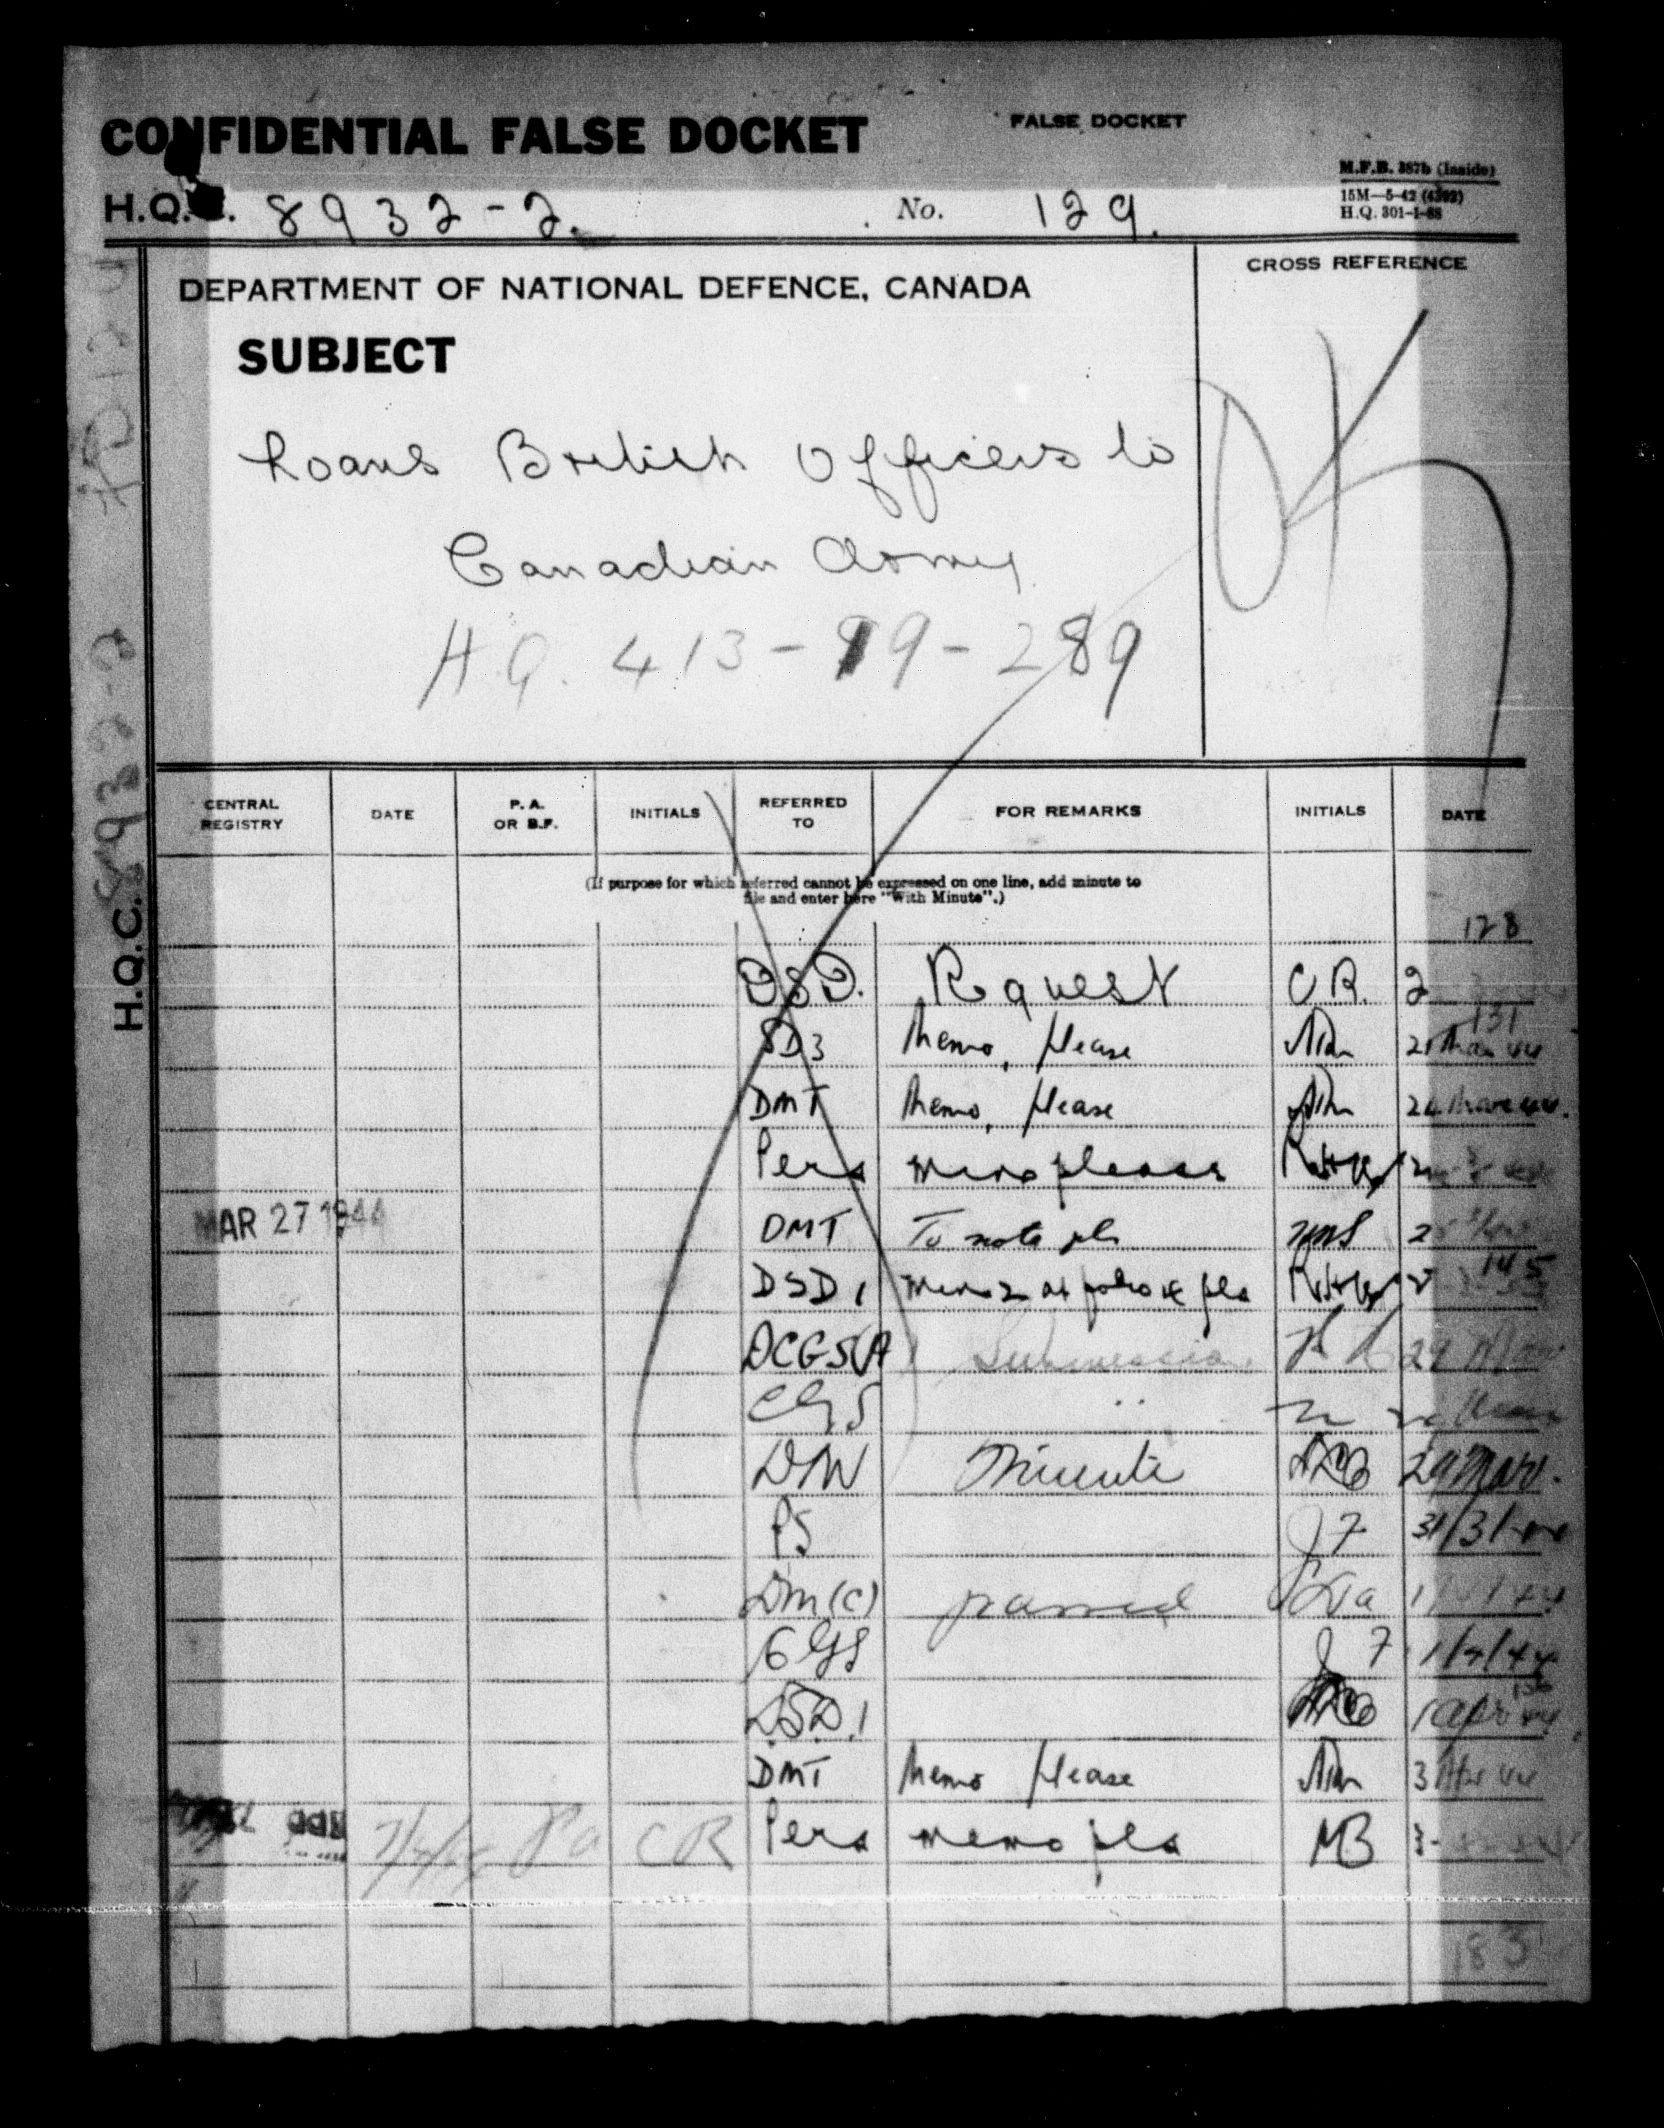 CONFIDENTIAL FALSE DOCKET
FALSE DOCKET
M.F.B. 387b (Inside)
15M—5-42 (4392)
H.Q. 301-1-88
H.Q. 8932-2. No. 129.
DEPARTMENT OF NATIONAL DEFENCE, CANADA
CROSS REFERENCE
SUBJECT
Loans British Officers to
Canadian Army
H.Q. 413-19-289
H.Q.C. 8932-2
CENTRAL REGISTRY DATE P. A. OR B.F. INITIALS REFERRED TO FOR REMARKS INITIALS DATE
(If purpose for which referred cannot be expressed on one line, add minute to
file and enter here "With Minute".)
128
DSD. Request C.R. 2
131
SD3 Memo, please 21 Mar 44
DMT Memo, please 24 Mar 44.
Pers memo please
MAR 27 1944 DMT To note pls
145
DSD 1 pls
DCGS(A) Submission 29 Mar
CGS "
DM Minute 29 Mar.
PS J7 31/3/44
DM(C) passed
CGS J7 1/4/44
DSD.1 1 Apr 44
DMT Memo please 3 Apr 44
Pa CR Pers memo pls MB 3-
183